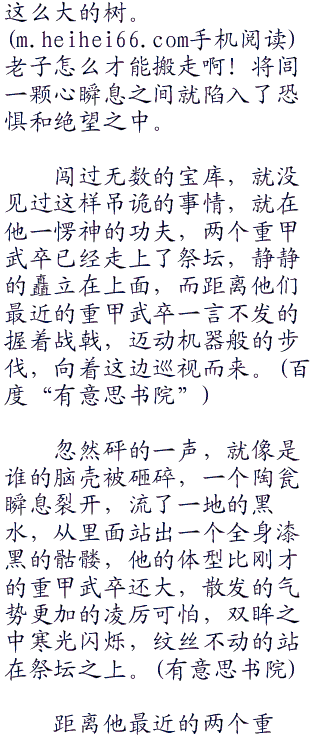 这么大的树。
(m.heihei66.com手机阅读)
老子怎么才能搬走啊！将闾
一颗心瞬息之间就陷入了恐
惧和绝望之中。
闯过无数的宝库，就没
见过这样吊诡的事情，就在
他一愣神的功夫，两个重甲
武卒已经走上了祭坛，静静
的矗立在上面，而距离他们
最近的重甲武卒一言不发的
握着战戟，迈动机器般的步
伐，向着这边巡视而来。(百
度“有意思书院”)
忽然砰的一声，就像是
谁的脑壳被砸碎，一个陶瓮
瞬息裂开，流了一地的黑
水，从里面站出一个全身漆
黑的骷髅，他的体型比刚才
的重甲武卒还大，散发的气
势更加的凌厉可怕，双眸之
中寒光闪烁，纹丝不动的站
在祭坛之上。(有意思书院)
距离他最近的两个重